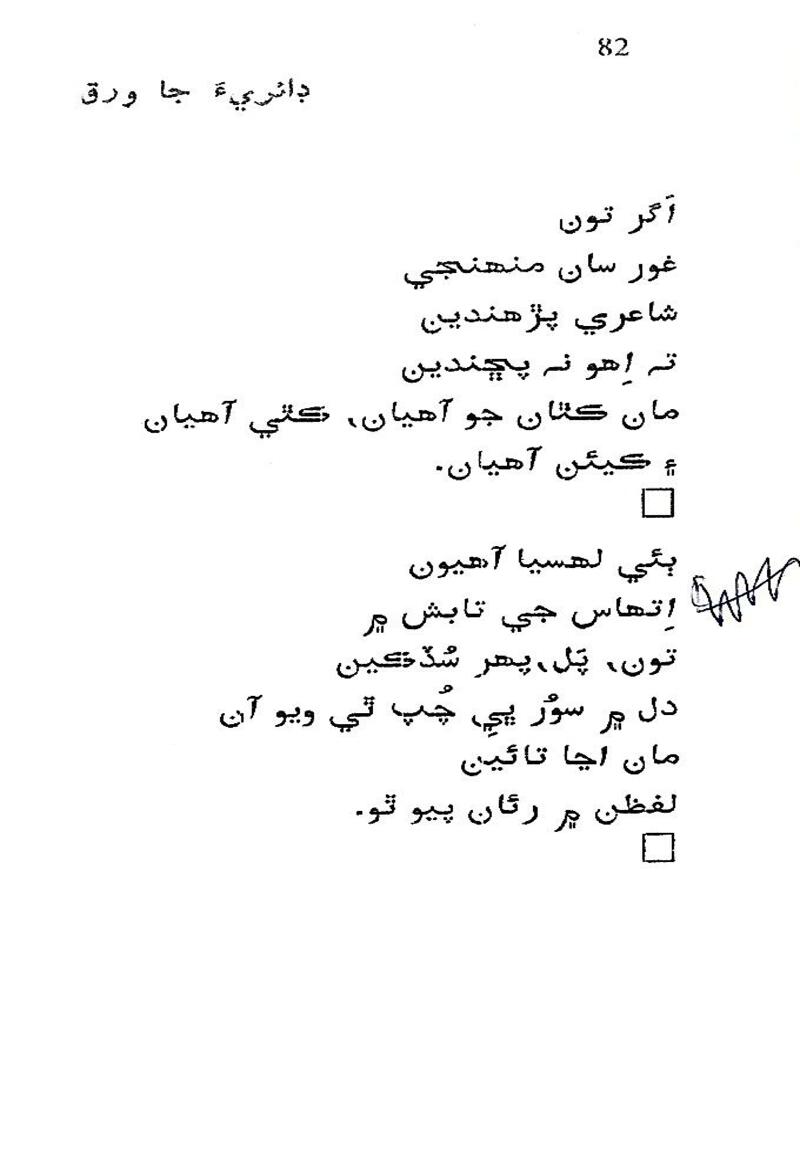 82
ڊائريءَ جا ورق
اَگر تون
غور سان منھنجي
شاعري پڙھندين
تہ اِھو نہ پڇندين
مان ڪٿان جو آھيان، ڪٿي آھيان
۽ ڪيئن آھيان.
ٻئي لھسيا آھيون
اِتھاس جي تابش ۾
تون، پَل،پھر سُڏڪين
دل ۾ سوُر ڀيِ چُپ ٿي ويو آن
مان اڃا تائين
لفظن ۾ رئان پيو ٿو.